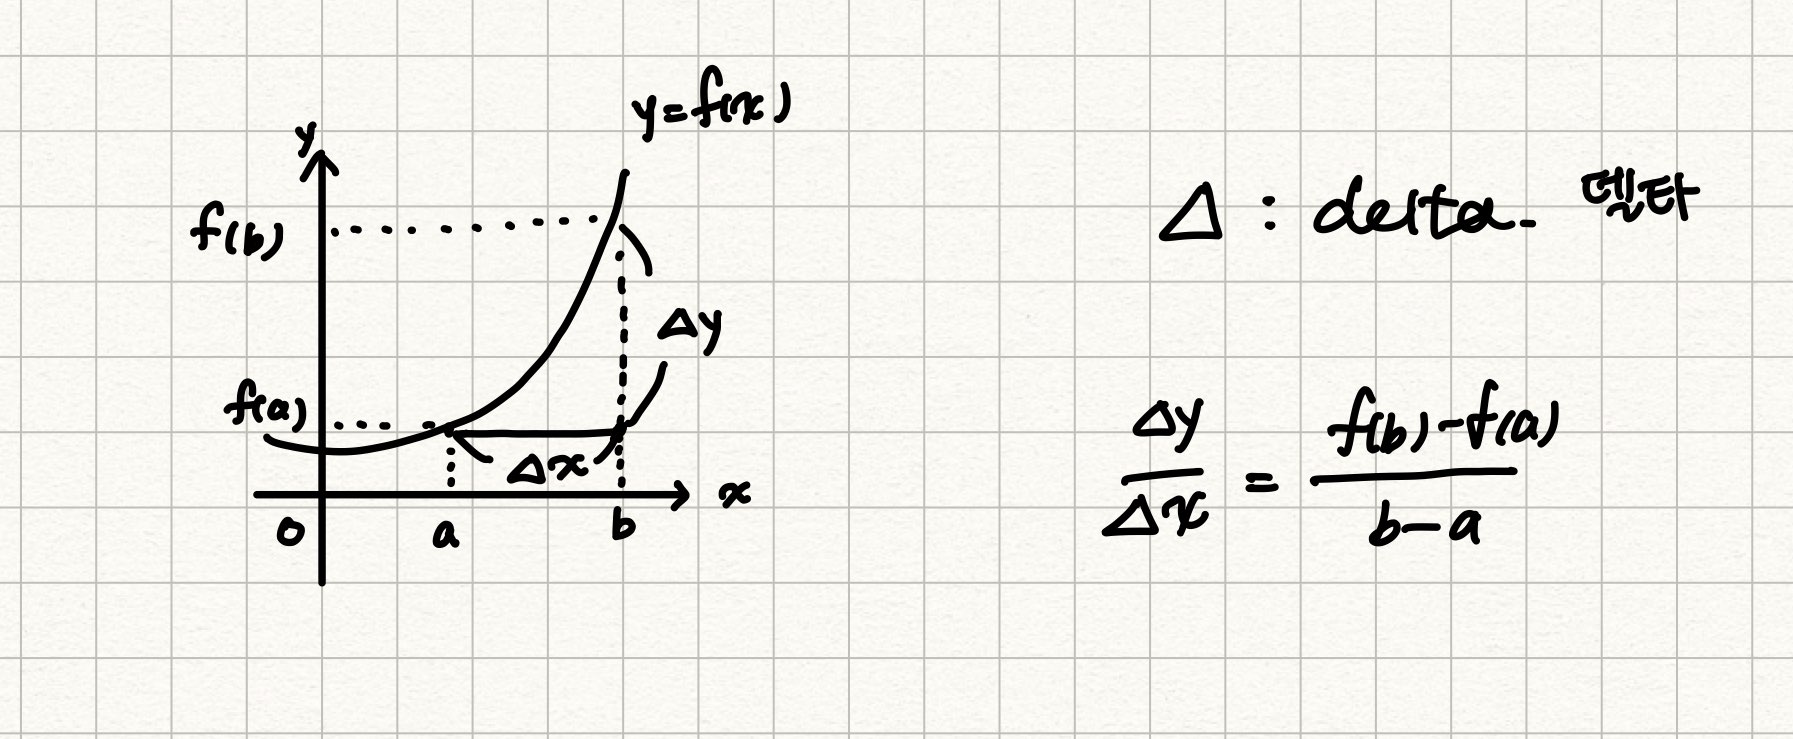 y=f(x)
y
f(b)
Δy
f(a)
Δx
x
0
a
b
Δ : delta. 델타
Δy/Δx = f(b)-f(a)/b-a